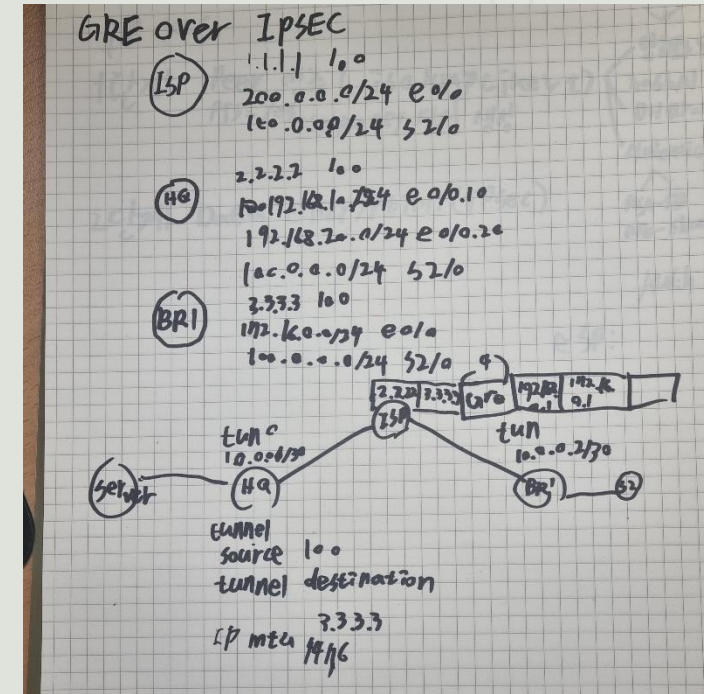 GRE over IpSEC
ISP
1.1.1.1 lo0
200.0.0.0/24 e0/0
100.0.0.0/24 S2/0
HQ
2.2.2.2 lo0
192.168.10./24 e0/0.10
192.168.20.0/24 e0/0.20
100.0.0.0/24 S2/0
BR1
3.3.3.3 lo0
172.16.0.0/24 e0/0
100.0.0.0/24 S2/0
4
2.2.2.2 3.3.3.3 Gre
0.1 0.1
ISP
tun0
tun
10.0.0.2/30
server HQ BR1 S2
tunnel
source lo0
tunnel destination
3.3.3.3
IP mtu